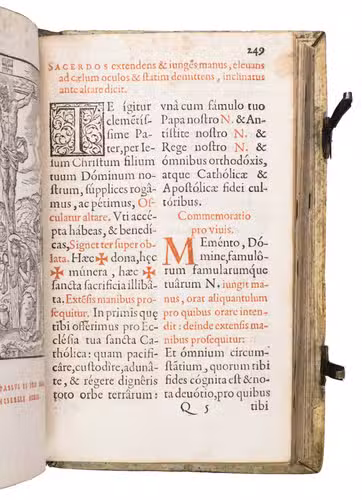 249
SACERDOS extendens & iungẽs manus, eleuans
ad cælum oculos & statim demittens, inclinatus
ante altare dicit.
TE igitur
clemẽtis-
sime Pa-
ter, per Ie-
sum Christum filium
tuum Dóminum no-
strum, súpplices rogâ-
mus, ac pétimus, Os-
culatur altare. Vti accé-
pta hábeas, & benedí-
cas, Signet ter super ob-
lata. Hæc ✠ dona, hęc
✠ múnera, hæc ✠
sancta sacrificia illibâ-
ta. Extẽsis manibus pro-
sequitur. In primis que
tibi offérimus pro Ec-
clésia tua sancta Ca-
thólica: quam pacifi-
cáre, custodíre, adunâ-
te, & régere dignéris
toto orbe terrárum:
vnà cum fámulo tuo
Papa nostro N. & An-
tístite nostro N. &
Rege nostro N. &
ómnibus orthodóxis,
atque Cathólicæ &
Apostólicæ fidei cul-
tóribus.
Commemoratio
pro viuis.
MEménto, Dó-
mine, famulô-
rum famularúmque
tuárum N. iungit ma-
nus, orat aliquantulum
pro quibus orare inten-
dit: deinde extensis ma-
nibus prosequitur:
Et ómnium circum-
stántium, quorum tibi
fides cógnita est & no-
ta deuótio, pro quibus
Q 5 tibi